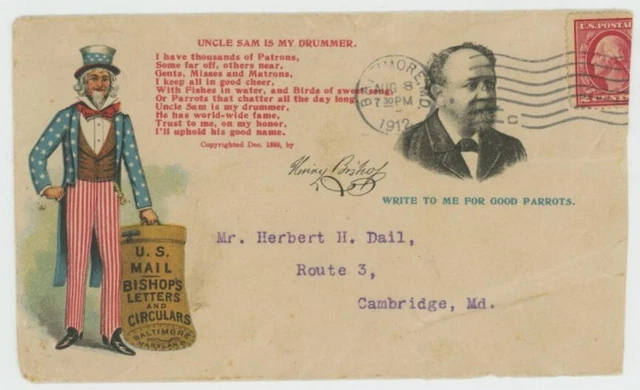 UNCLE SAM IS MY DRUMMER.
I have thousands of Patrons,
Some far off, others near,
Gents, Misses and Matrons,
I keep all in good cheer,
With Fishes in water, and Birds of sweet song
Or Parrots that chatter all the day long
Uncle Sam is my drummer,
He has world-wide fame,
Trust to me, on my honor,
I'll uphold his good name.
Copyrighted Dec. 1899, by
Henry Bishop
BALTIMORE, MD.
AUG 8
7 30 PM
1912
U.S. POSTAGE
2 CENTS 2
WRITE TO ME FOR GOOD PARROTS.
Mr. Herbert H. Dail,
Route 3,
Cambridge, Md.
U.S.
MAIL
BISHOP'S
LETTERS
AND
CIRCULARS
BALTIMORE
MARYLAND